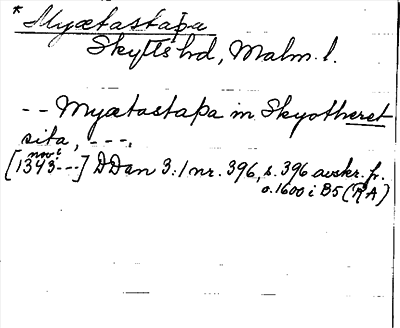 * Myætastaþa
Skytts hd, Malm. l.
-- Myætastaþa in Skyotheret
sita, ---.
nov.
[1343---] DDan 3:1 nr. 396, s. 396 avskr. fr.
o. 1600 i B5 (RA)